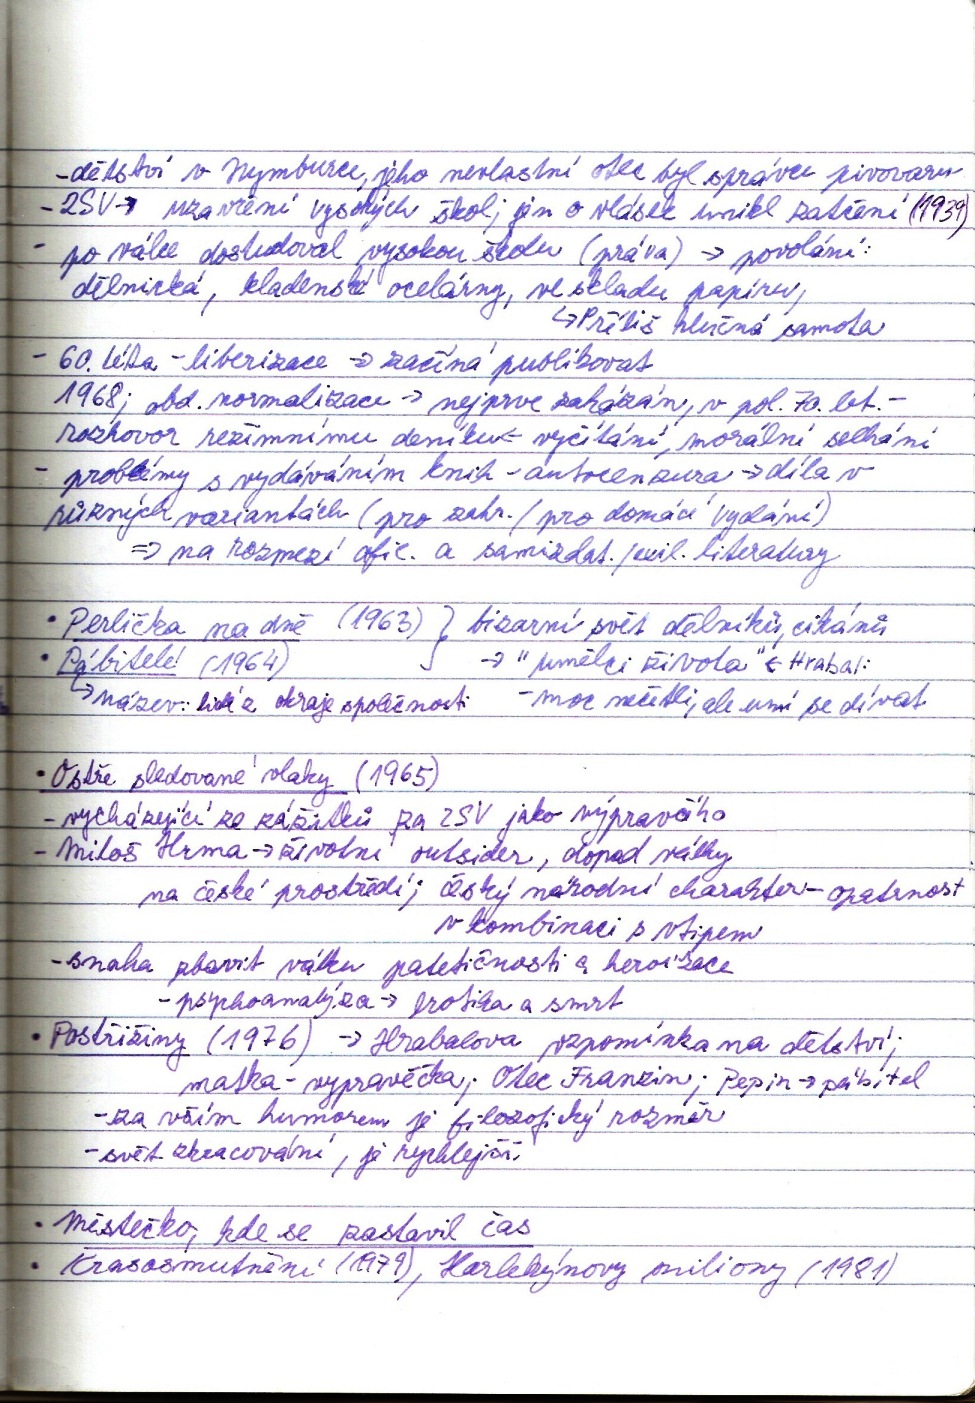 - dětství v Nymburce, jeho nevlastní otec byl správcem pivovaru
- 2SV → uzavření vysokých škol; jen o vlásek unikl zatčení (1939)
- po válce dostudoval vysokou školu (práva) → povolání:
dělnická, kladenské ocelárny, ve skladu papíru,
↳ Příliš hlučná samota
- 60. léta - liberizace → začíná publikovat
1968; obd. normalizace → nejprve zakázán, v pol. 70. let. -
rozhovor režimnímu deníku ← vyčítání, morální selhání
- problémy s vydáváním knih - autocenzura → díla v
různých variantách (pro zahr. / pro domácí vydání)
⇒ na rozmezí ofic. a samizdat. / exil. literatury
• Perlička na dně (1963) } bizarní svět dělníků, cikánů
• Pábitelé (1964) → "umělci života" ← Hrabal:
↳ název: lidé z okraje společnosti - moc nečetli, ale umí se dívat
• Ostře sledované vlaky (1965)
- vycházející ze zážitků za 2SV jako výpravčího
- Miloš Hrma → životní outsider, dopad války
na české prostředí; český národní charakter - opatrnost
v kombinaci s vtipem
- snaha zbavit válku patetičnosti a heroizace
- psychoanalýza → erotika a smrt
• Postřižiny (1976) → Hrabalova vzpomínka na dětství;
matka - vypravěčka; Otec Franzin; Pepin → pábitel
- za vším humorem je filozofický rozměr
- svět zkracování, je rychlejší
• Městečko, kde se zastavil čas
• Krasosmutnění (1979), Harlekýnovy miliony (1981)